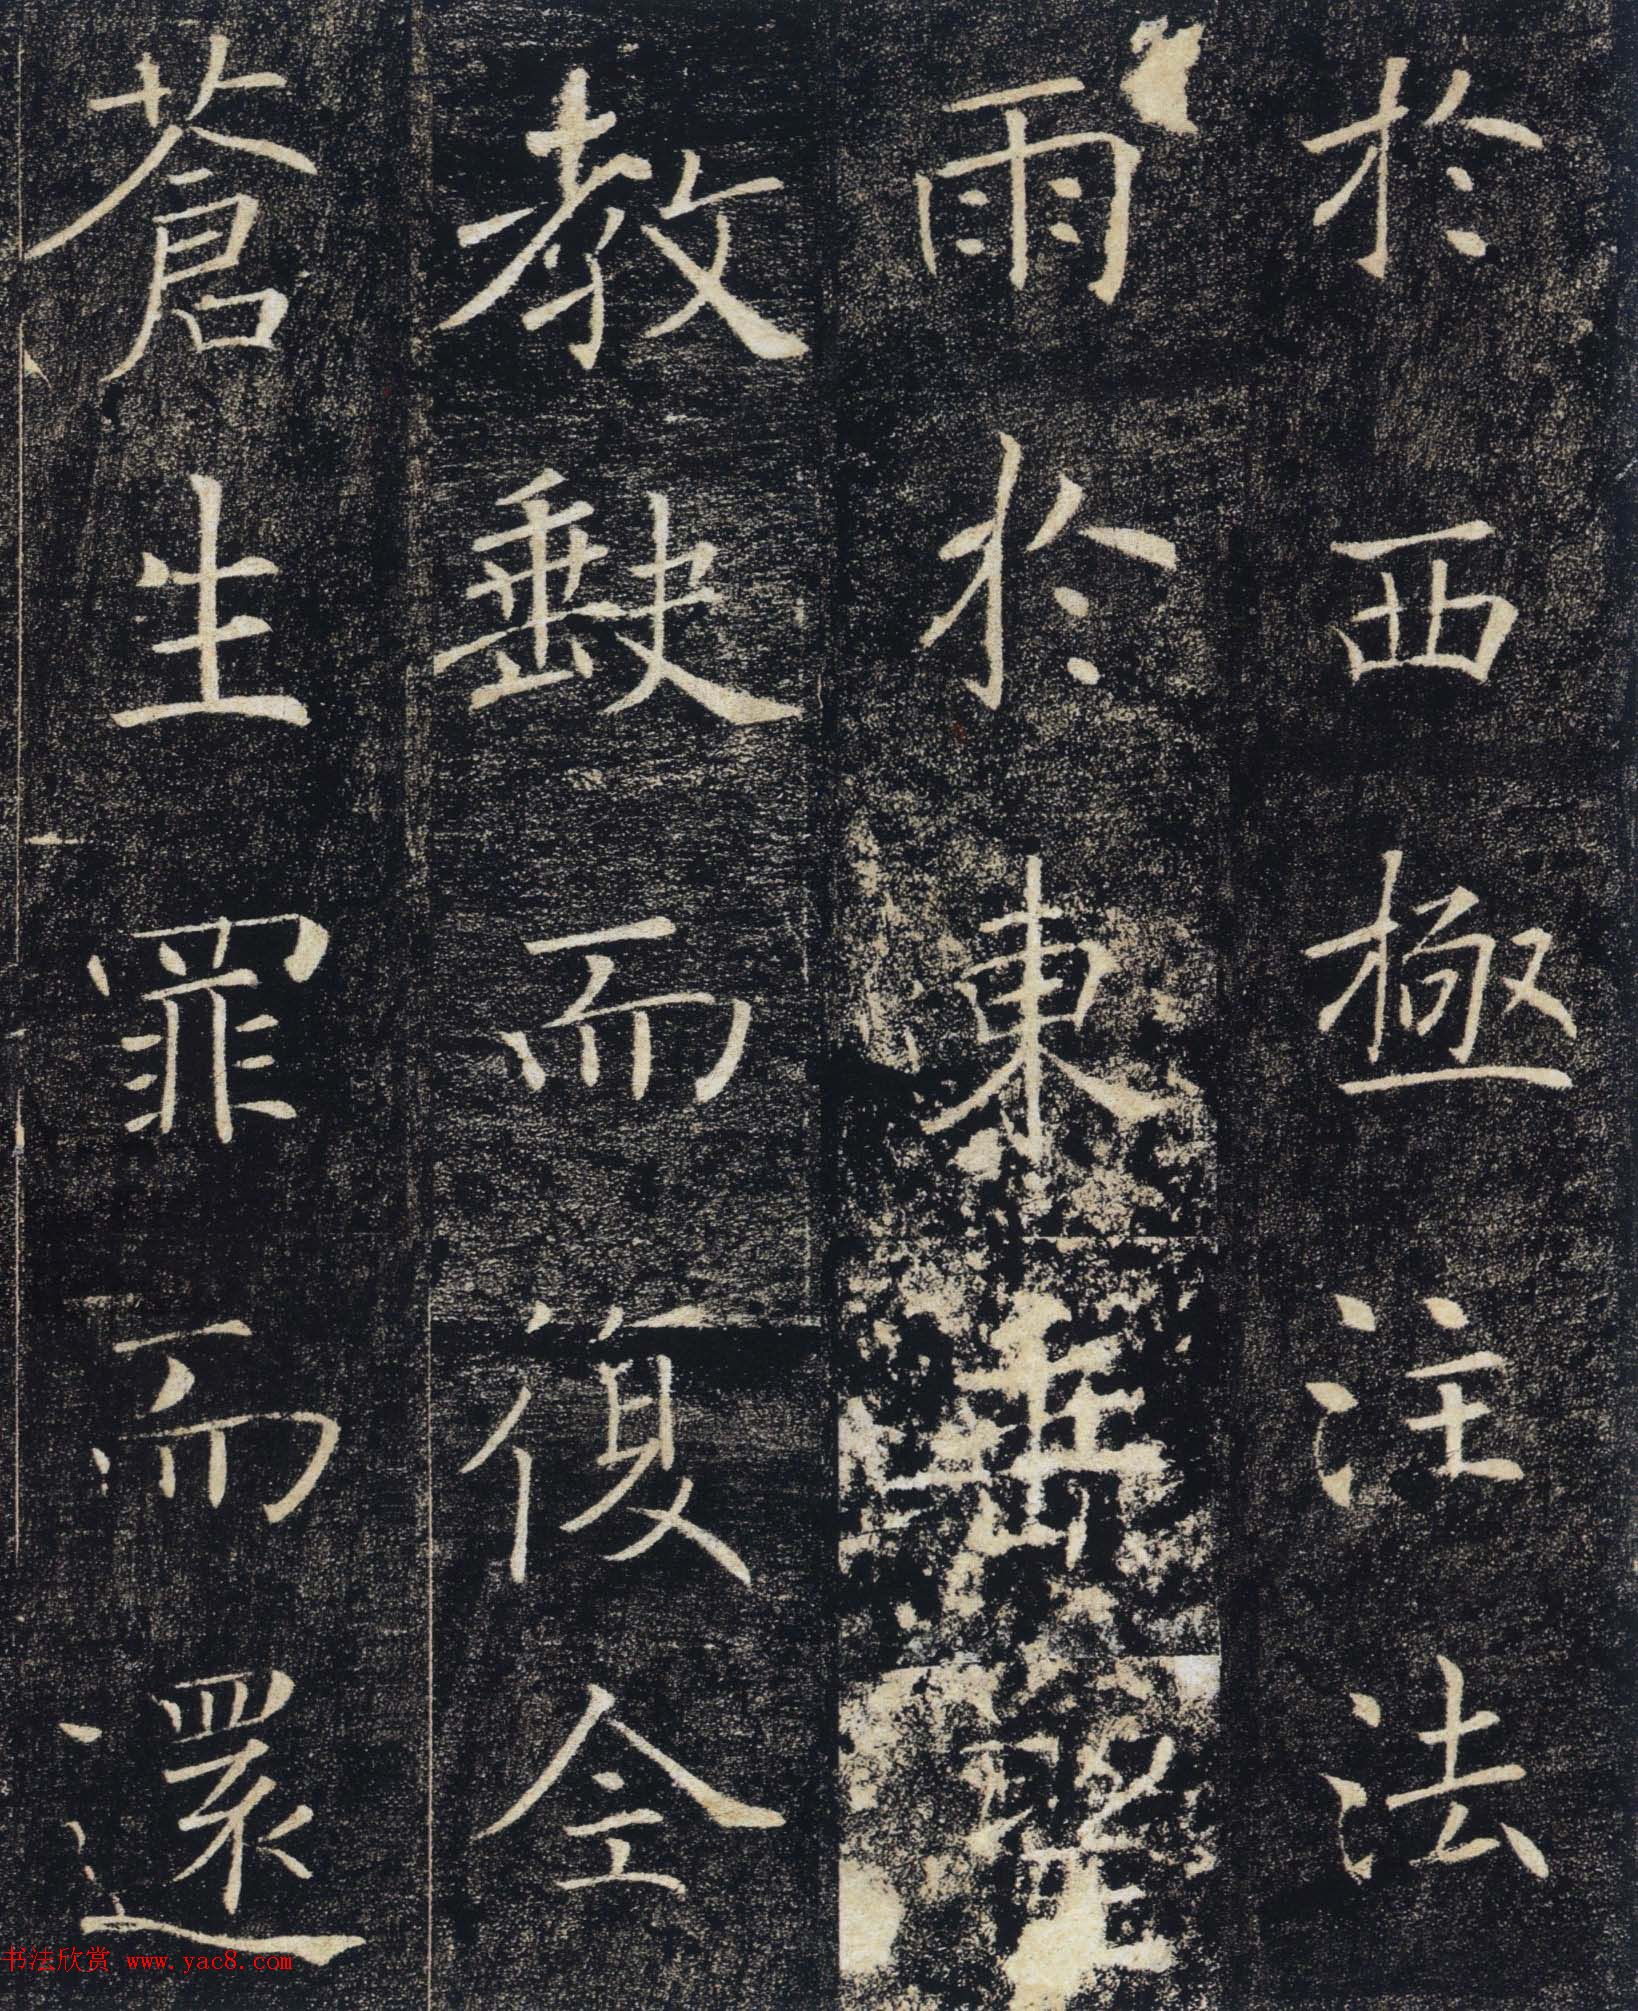 於西極注法
雨於東垂聖
教缺而復全
蒼生罪而還
书法欣赏 www.yac8.com